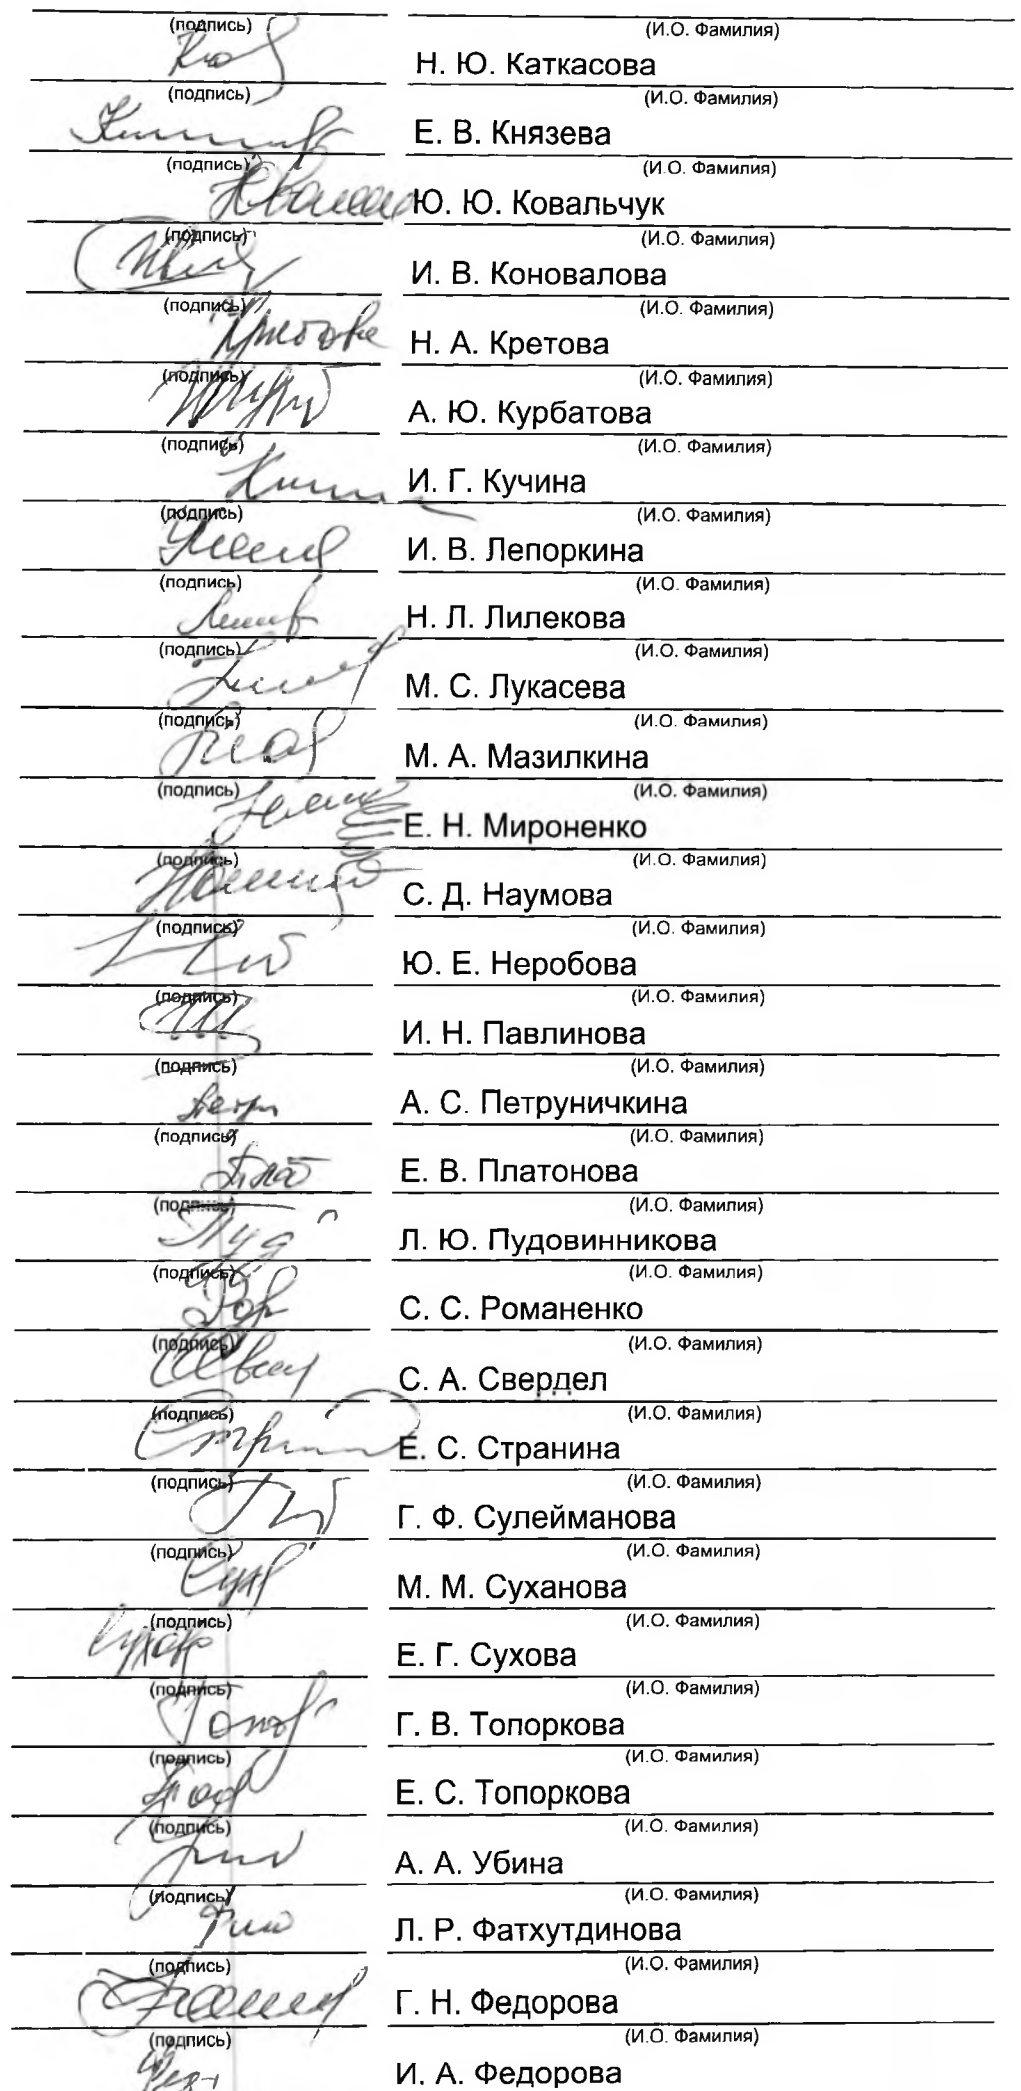 (подпись) (И.О. Фамилия)
Н. Ю. Каткасова
(подпись) (И.О. Фамилия)
Е. В. Князева
(подпись) (И.О. Фамилия)
Ю. Ю. Ковальчук
(подпись) (И.О. Фамилия)
И. В. Коновалова
(подпись) (И.О. Фамилия)
Кретова Н. А. Кретова
(подпись) (И.О. Фамилия)
А. Ю. Курбатова
(подпись) (И.О. Фамилия)
И. Г. Кучина
(подпись) (И.О. Фамилия)
И. В. Лепоркина
(подпись) (И.О. Фамилия)
Н. Л. Лилекова
(подпись) (И.О. Фамилия)
М. С. Лукасева
(подпись) (И.О. Фамилия)
М. А. Мазилкина
(подпись) (И.О. Фамилия)
Е. Н. Мироненко
(подпись) (И.О. Фамилия)
С. Д. Наумова
(подпись) (И.О. Фамилия)
Ю. Е. Неробова
(подпись) (И.О. Фамилия)
И. Н. Павлинова
(подпись) (И.О. Фамилия)
А. С. Петруничкина
(подпись) (И.О. Фамилия)
Е. В. Платонова
(подпись) (И.О. Фамилия)
Л. Ю. Пудовинникова
(подпись) (И.О. Фамилия)
С. С. Романенко
(подпись) (И.О. Фамилия)
С. А. Свердел
(подпись) (И.О. Фамилия)
Е. С. Странина
(подпись) (И.О. Фамилия)
Г. Ф. Сулейманова
(подпись) (И.О. Фамилия)
М. М. Суханова
(подпись) (И.О. Фамилия)
Е. Г. Сухова
(подпись) (И.О. Фамилия)
Г. В. Топоркова
(подпись) (И.О. Фамилия)
Е. С. Топоркова
(подпись) (И.О. Фамилия)
А. А. Убина
(подпись) (И.О. Фамилия)
Л. Р. Фатхутдинова
(подпись) (И.О. Фамилия)
Г. Н. Федорова
(подпись) (И.О. Фамилия)
И. А. Федорова